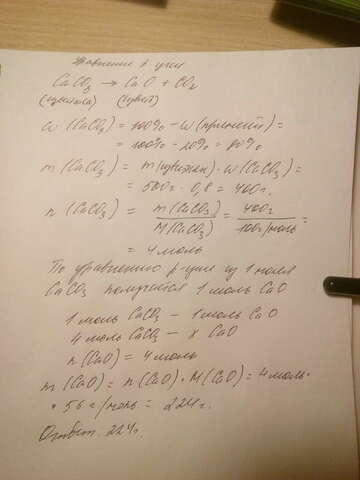 Уравнение р-ции
CaCO₃ → CaO + CO₂
(известь)
w (CaCO₃) = 100% - w (примесей) =
= 100% - 20% = 80%
m (CaCO₃) = m (известняк) · w (CaCO₃) =
= 500г · 0,8 = 400г.
n (CaCO₃) = m(CaCO₃) / M(CaCO₃) = 400г / 100г/моль =
= 4 моль
По уравнению р-ции из 1 моля
CaCO₃ получается 1 моль CaO
1 моль CaCO₃ - 1 моль CaO
4 моль CaCO₃ - x CaO
n (CaO) = 4 моль
m (CaO) = n (CaO) · M (CaO) = 4 моль ·
· 56 г/моль = 224 г.
Ответ. 224г.